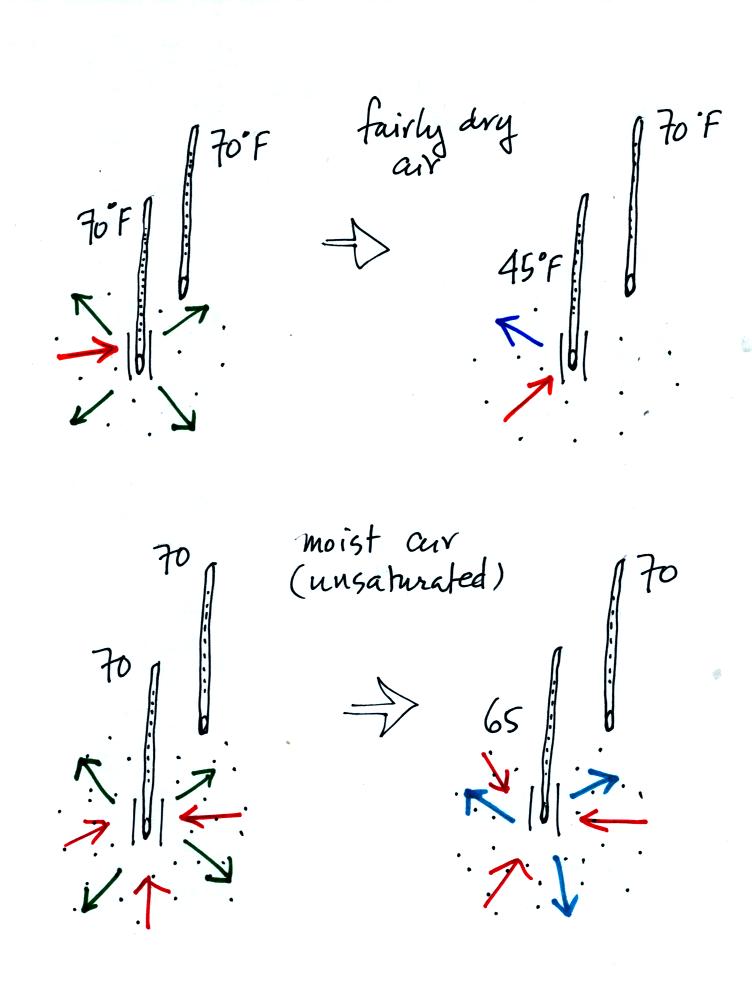 70°F
70°F
fairly dry
air
45°F
70°F
70
70
moist air
(unsaturated)
65
70